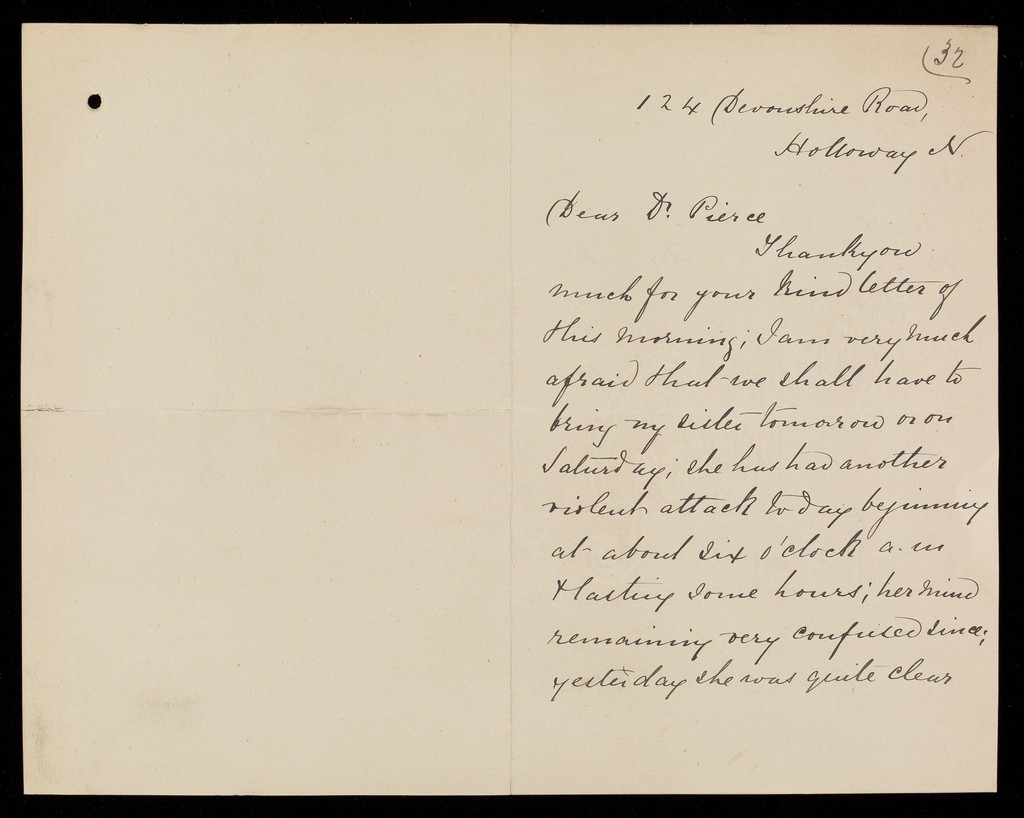 (32
124 Devonshire Road,
Holloway N.
Dear Dr. Pierce
Thank you
much for your kind letter of
this morning; I am very much
afraid that we shall have to
bring my sister tomorrow or on
Saturday; she has had another
violent attack to day beginning
at about six o'clock a.m
& lasting some hours; her mind
remaining very confused since;
yesterday she was quite clear